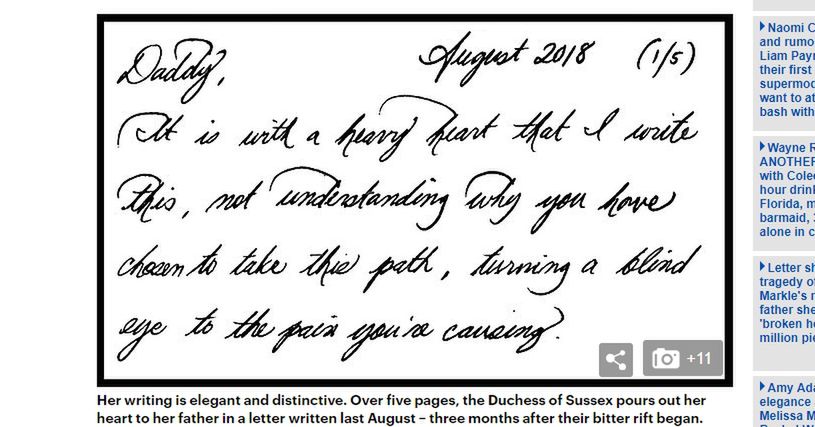 Daddy,
August 2018 (1/5)
It is with a heavy heart that I write
this, not understanding why you have
chosen to take this path, turning a blind
eye to the pain you're causing.
+11
Her writing is elegant and distinctive. Over five pages, the Duchess of Sussex pours out her
heart to her father in a letter written last August – three months after their bitter rift began.
Naomi C
and rumo
Liam Payn
their first
supermod
want to at
bash with
Wayne R
ANOTHER
with Colee
hour drink
Florida, m
barmaid, 3
alone in c
Letter sh
tragedy of
Markle's r
father she
'broken he
million pie
Amy Ada
elegance
Melissa M